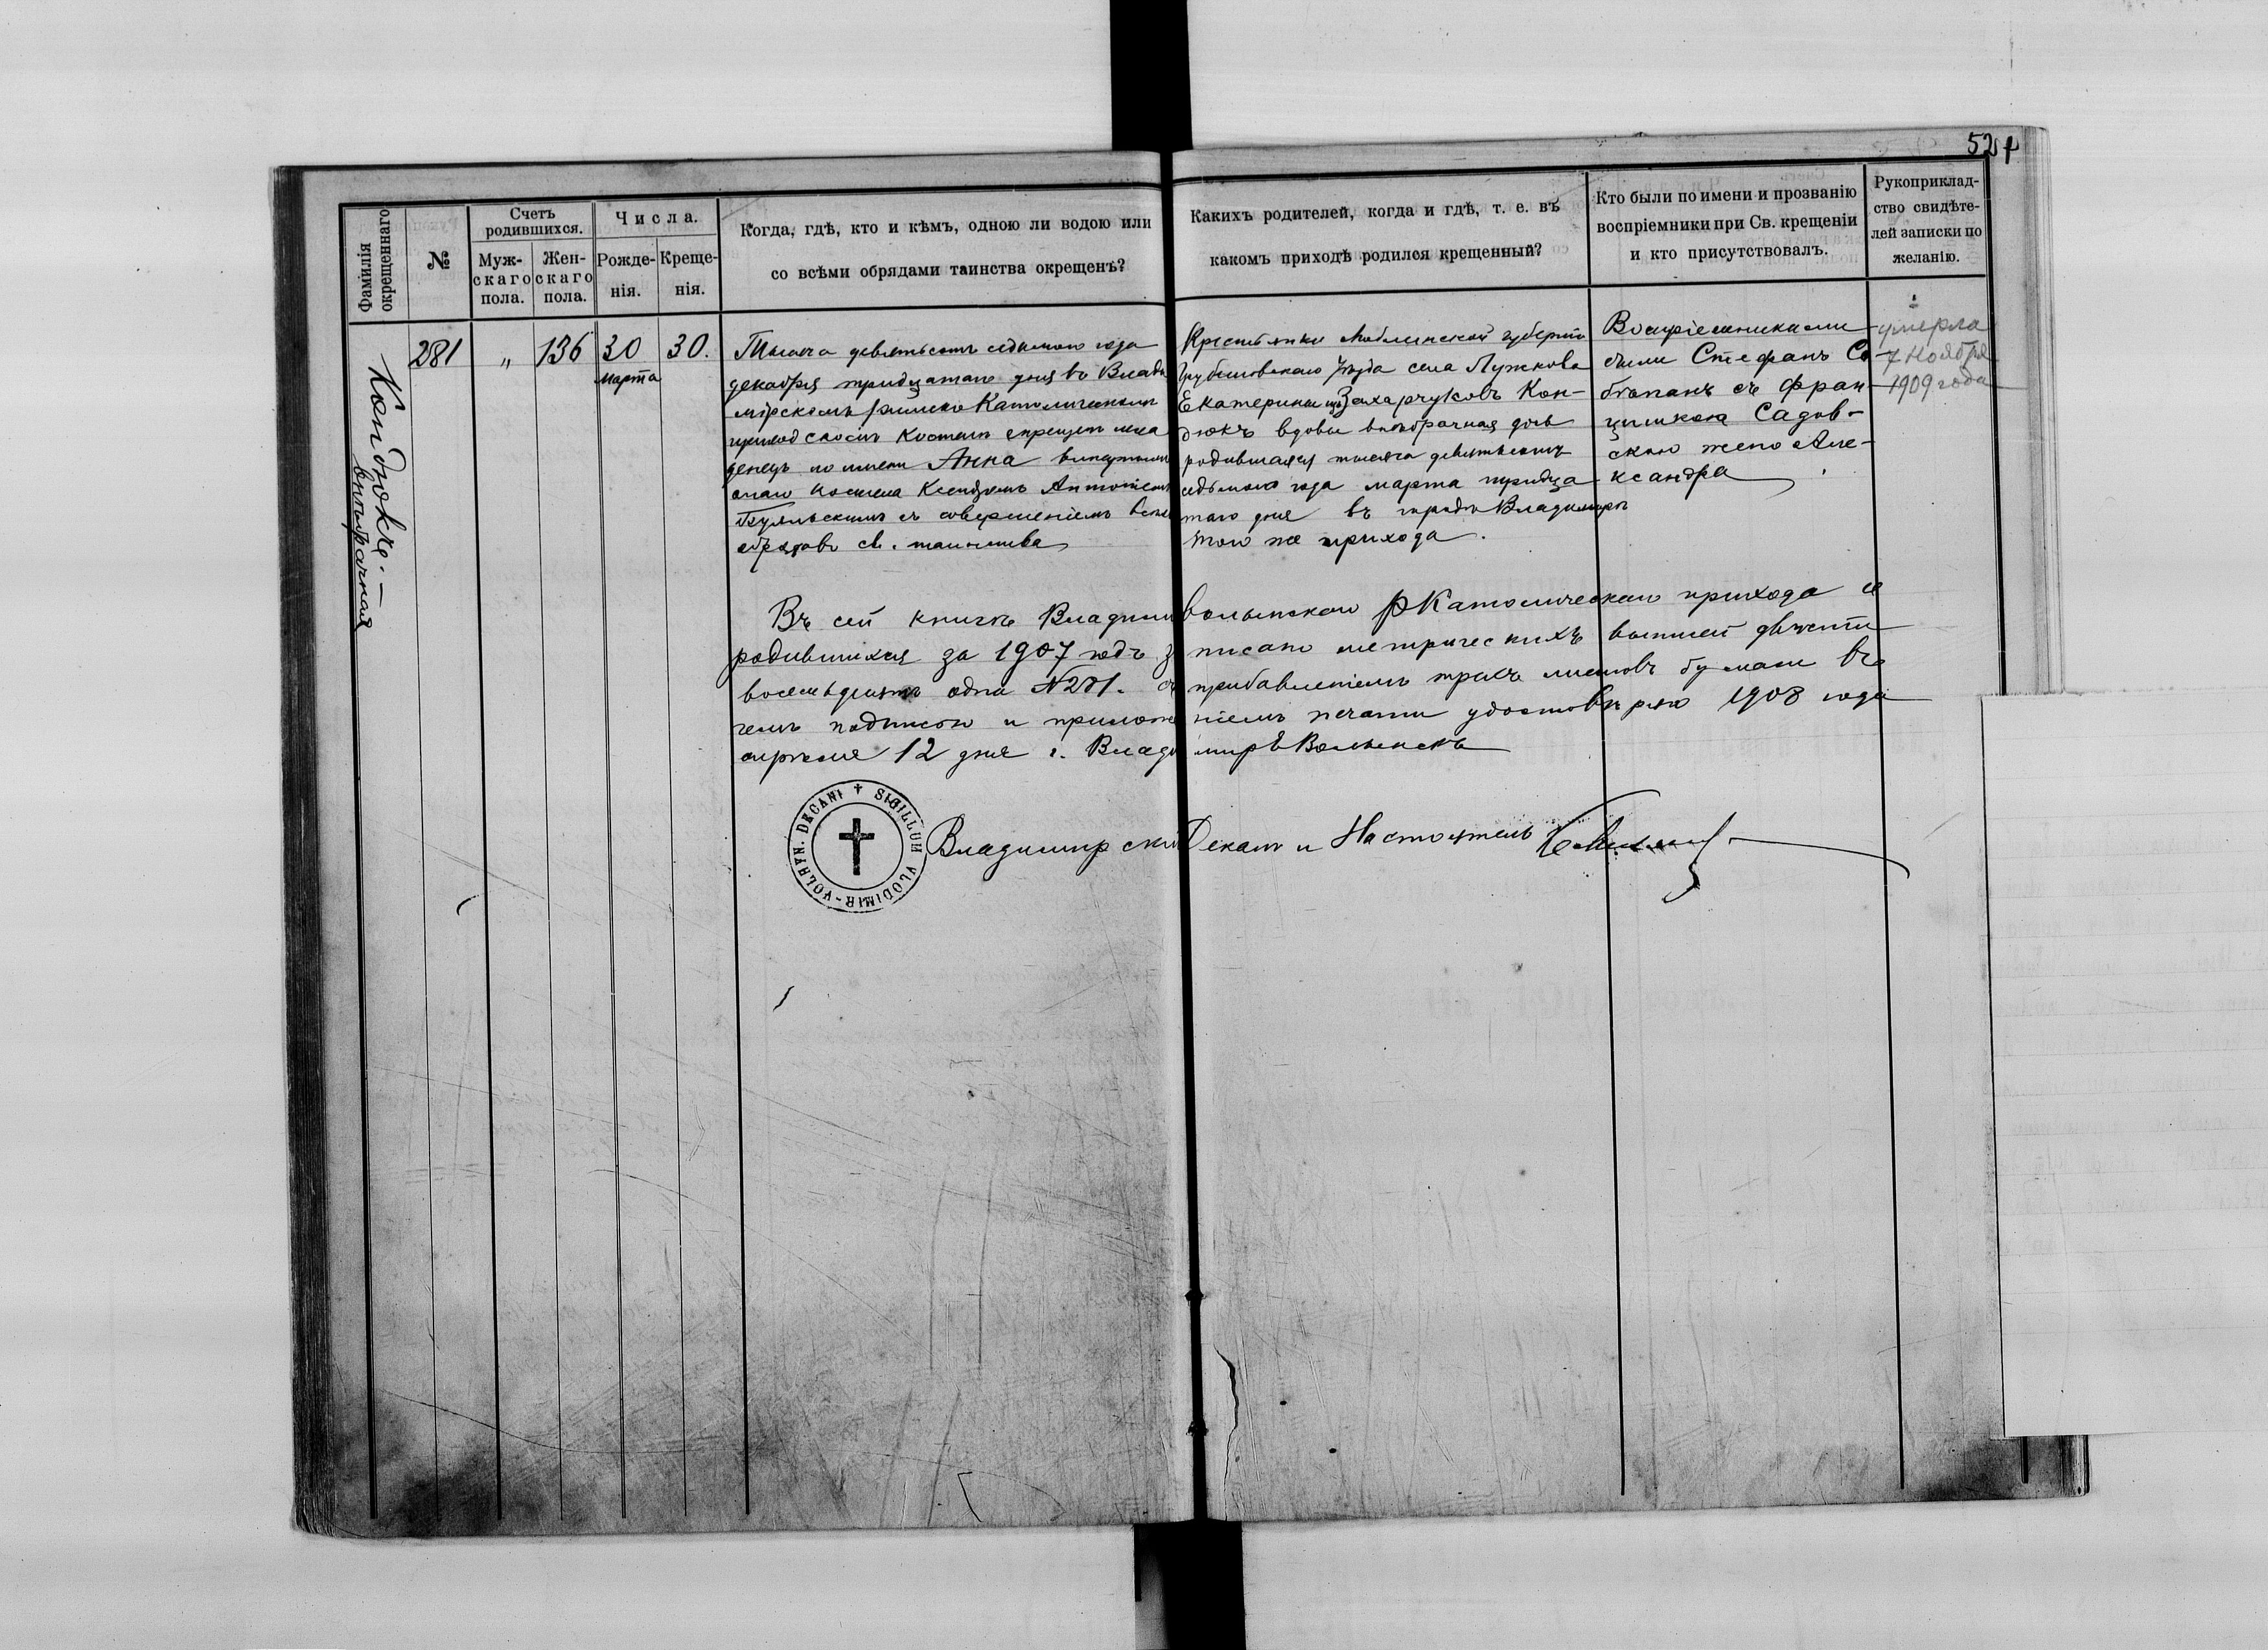 52
Фамилія окрещеннаго
№
Счетъ родившихся.
Муж-
скаго
пола.
Жен-
скаго
пола.
Числа.
Рожде-
нія.
Креще-
нія.
Когда, гдѣ, кто и кѣмъ, одною ли водою или
со всѣми обрядами таинства окрещенъ?
Какихъ родителей, когда и гдѣ, т. е. въ
какомъ приходѣ родился крещенный?
Кто были по имени и прозванію
воспріемники при Св. крещеніи
и кто присутствовалъ.
Рукоприклад-
ство свидѣте-
лей записки по
желанію.
Кондюкъ. —
внѣбрачная
281
"
136
30
марта
30.
Тысяча девятьсотъ седьмого года
декабря тридцатаго дня въ Влади
мірскомъ римско Католическомъ
приходскомъ Костелѣ окрещенъ мла
денецъ по имени Анна
онаго Костела Ксендзомъ Антоніемъ
съ совершеніемъ всѣхъ
обрядовъ св. таинства
Крестьянки Люблинской губерніи
Грубешовскаго уѣзда села Лужкова
Екатерины изъ Захарчуковъ Кон-
дюкъ вдовы внѣбрачная дочь
родившаяся тысяча девятьсотъ
седьмого года марта тридца
таго дня въ городѣ Владимірѣ
того же прихода.
Воспріемниками
были Стефанъ Со
съ Фран-
цишкою Садов-
скою жено Але-
ксандра
умерла
7 Ноября
1909 года
Въ сей книгѣ Владимі волынскаго Р Католическаго прихода о
родившихся за 1907 годъ за писано метрическихъ двѣсти
восемьдесятъ одна №281. съ прибавленіемъ трехъ листовъ бумаги въ
чемъ подписью и приложе ніемъ печати удостовѣряю 1908 года
апрѣля 12 дня г. Влади миръ Волынскъ
SIGILLUM VLODIMIR-VOLHYN. DECANI
Владимирскій Деканъ и Настоятель